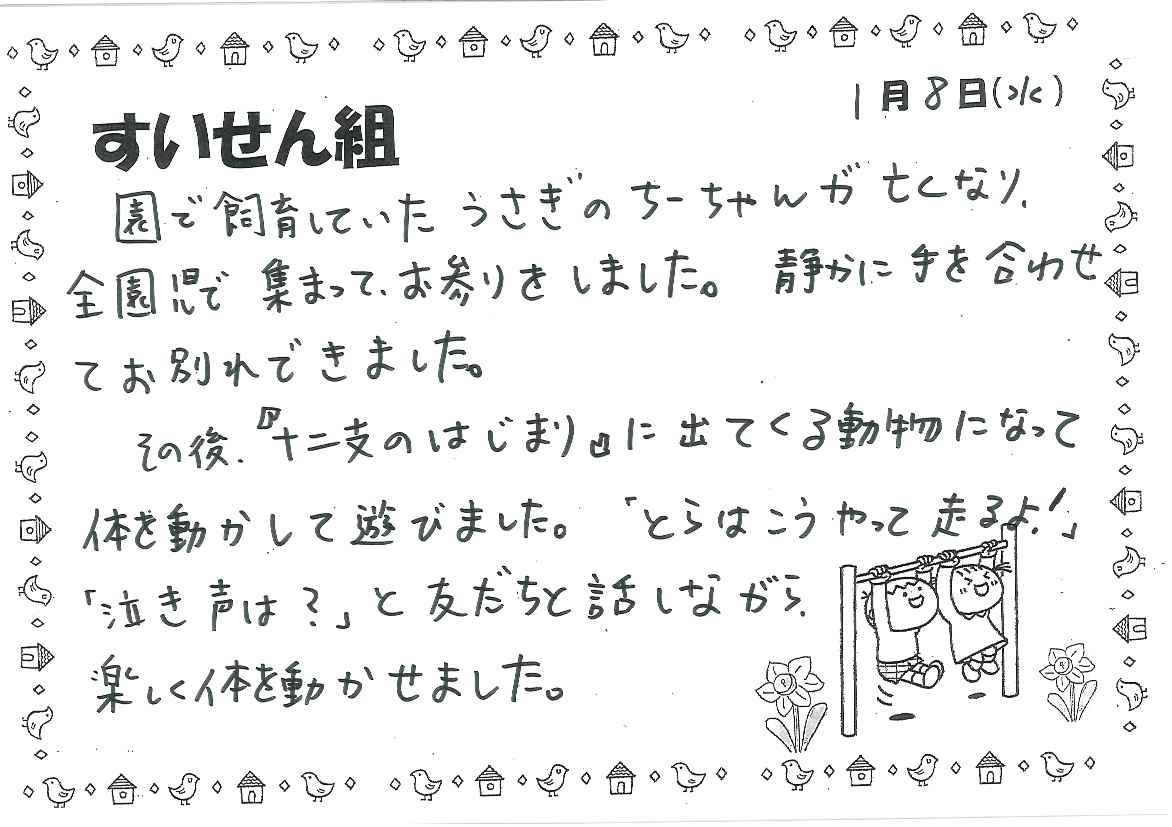 1月8日(水)
すいせん組
園で飼育していたうさぎのちーちゃんが亡くなり、
全園児で集まって、お参りをしました。静かに手を合わせ
てお別れできました。
その後、『十二支のはじまり』に出てくる動物になって
体を動かして遊びました。「とらはこうやって走るよ!」
「泣き声は?」と友だちと話しながら、
楽しく体を動かせました。